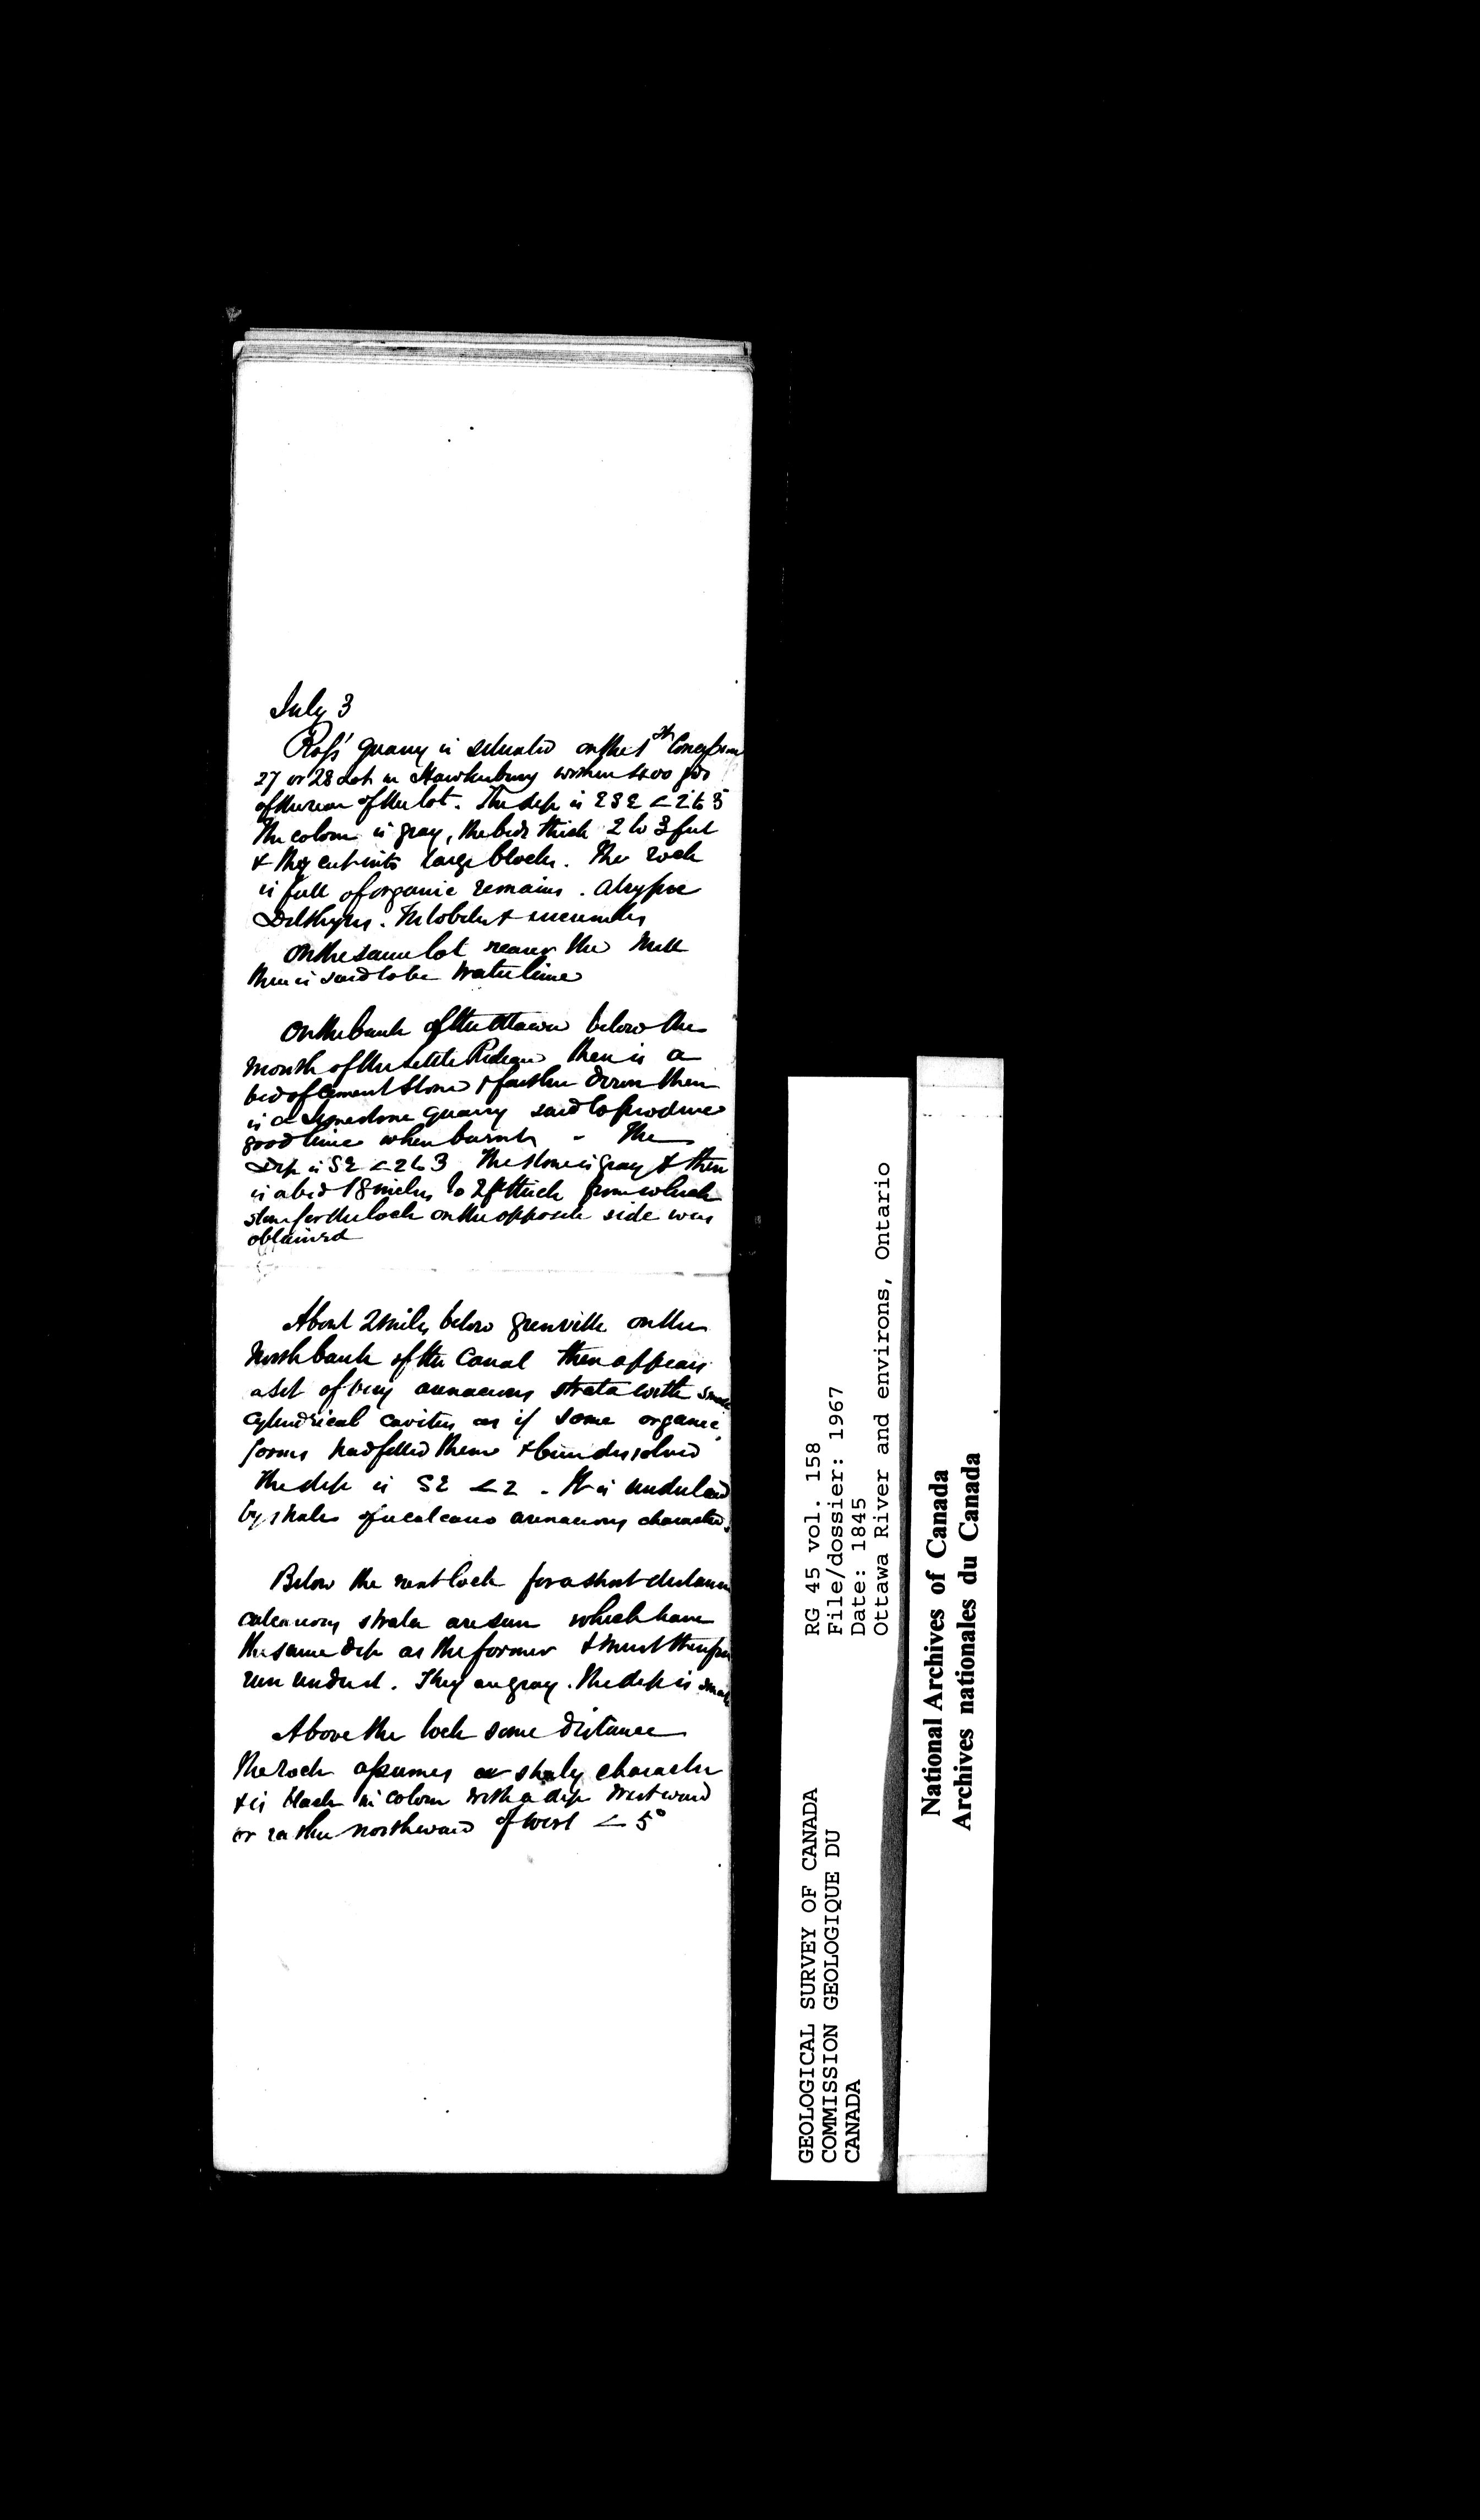 July 3
Ross' quarry is situated on the 1st Concession
27 or 28 Lot in Hawkesbury within 400 yds
of the rear of the lot. The dip is ESE < 2 to 3
The colour is gray, the beds thick 2 to 3 feet
& they cut into large blocks. The rock
is full of organic remains. Atrypae
Delthyris. Trilobites & encrinites
On the same lot nearer the
there is said to be Water lime
On the bank of the Ottawa below the
mouth of the Little Rideau there is a
bed of Cement Stone & farther down there
is a Limestone quarry said to produce
good lime when burnt - The
Dip is SE < 2 to 3 The stone is gray & there
is a bed 18 inches to 2 ft thick from which
stone for the lock on the opposite side was
obtained
About 2 miles below Grenville on the
North bank of the Canal there appears
a set of very arenaceous strata with small
cylindrical cavities as if some organic
forms had filled them & been dissolved
The dip is SE < 2 - It is underlaid
by shales of a calcareo arenaceous character.
Below the next lock for a short distance
calcareous strata are seen which have
the same dip as the former & must therefore
run under it. They are gray. The dip is small
Above the lock some distance
the rock assumes a shaly character
& is black in colour with a dip Westward
or rather northward of west < 5°
GEOLOGICAL SURVEY OF CANADA
COMMISSION GEOLOGIQUE DU
CANADA
RG 45 vol. 158
File/dossier: 1967
Date: 1845
Ottawa River and environs, Ontario
National Archives of Canada
Archives nationales du Canada